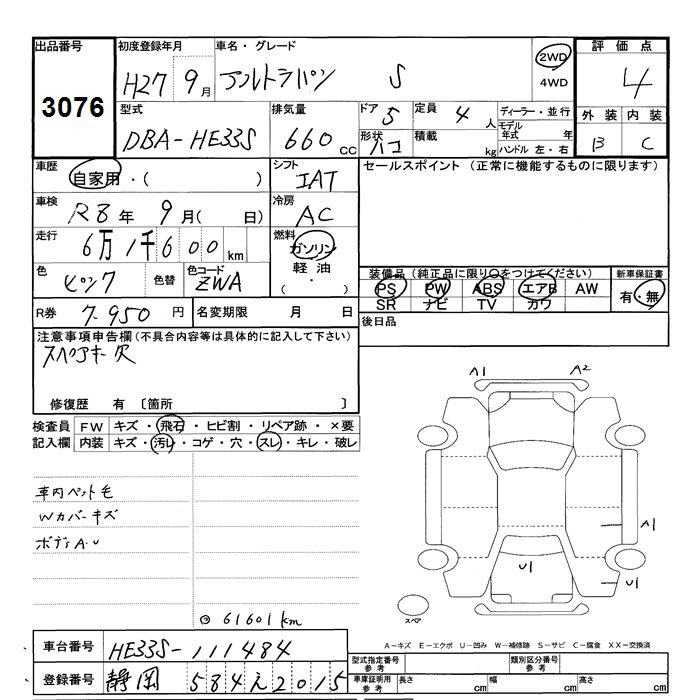 出品番号 初度登録年月 車名・グレード 2WD 評価点
3076 H27 9月 アルトラパン S 4WD 4
型式 排気量 ドア 定員 ディーラー・並行 外装 内装
DBA-HE33S 660cc 5 4人 モデル年式 年 B C
形状 ハコ 積載 kg ハンドル 左・右
車歴 自家用・( ) シフト IAT セールスポイント (正常に機能するものに限ります)
車検 R8年 9月(日) 冷房 AC
走行 6万1千600km 燃料 ガソリン
軽油・( )
色 ピンク 色替 色コード ZWA
装備品(純正品に限り○をつけてください) 新車保証書
PS PW ABS エアB AW 有・無
SR ナビ TV カワ
R券 7.950円 名変期限 月 日 後日品
注意事項申告欄(不具合内容等は具体的に記入して下さい)
スペアキー欠
修復歴 有 〔箇所 〕
検査員 FW キズ・飛石・ヒビ割・リペア跡・×要
記入欄 内装 キズ・汚レ・コゲ・穴・スレ・キレ・破レ
車内ペット毛
Wカバーキズ
ボディA.U
A1 A2
A1
U1 U1
スペア
◎ 61601km
A-キズ E-エクボ U-凹み W-補修跡 S-サビ C-腐食 XX-交換済
車台番号 HE33S-111484
型式指定番号 参考 類別区分番号 参考
登録番号 静岡 584え2015
車庫証明用 参考 長さ cm 幅 cm 高さ cm